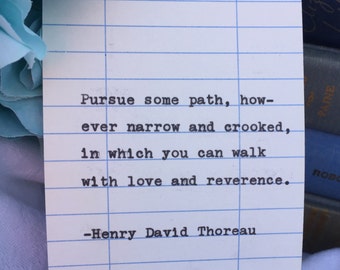 Pursue some path, how-
ever narrow and crooked,
in which you can walk
with love and reverence.
-Henry David Thoreau
PAINE